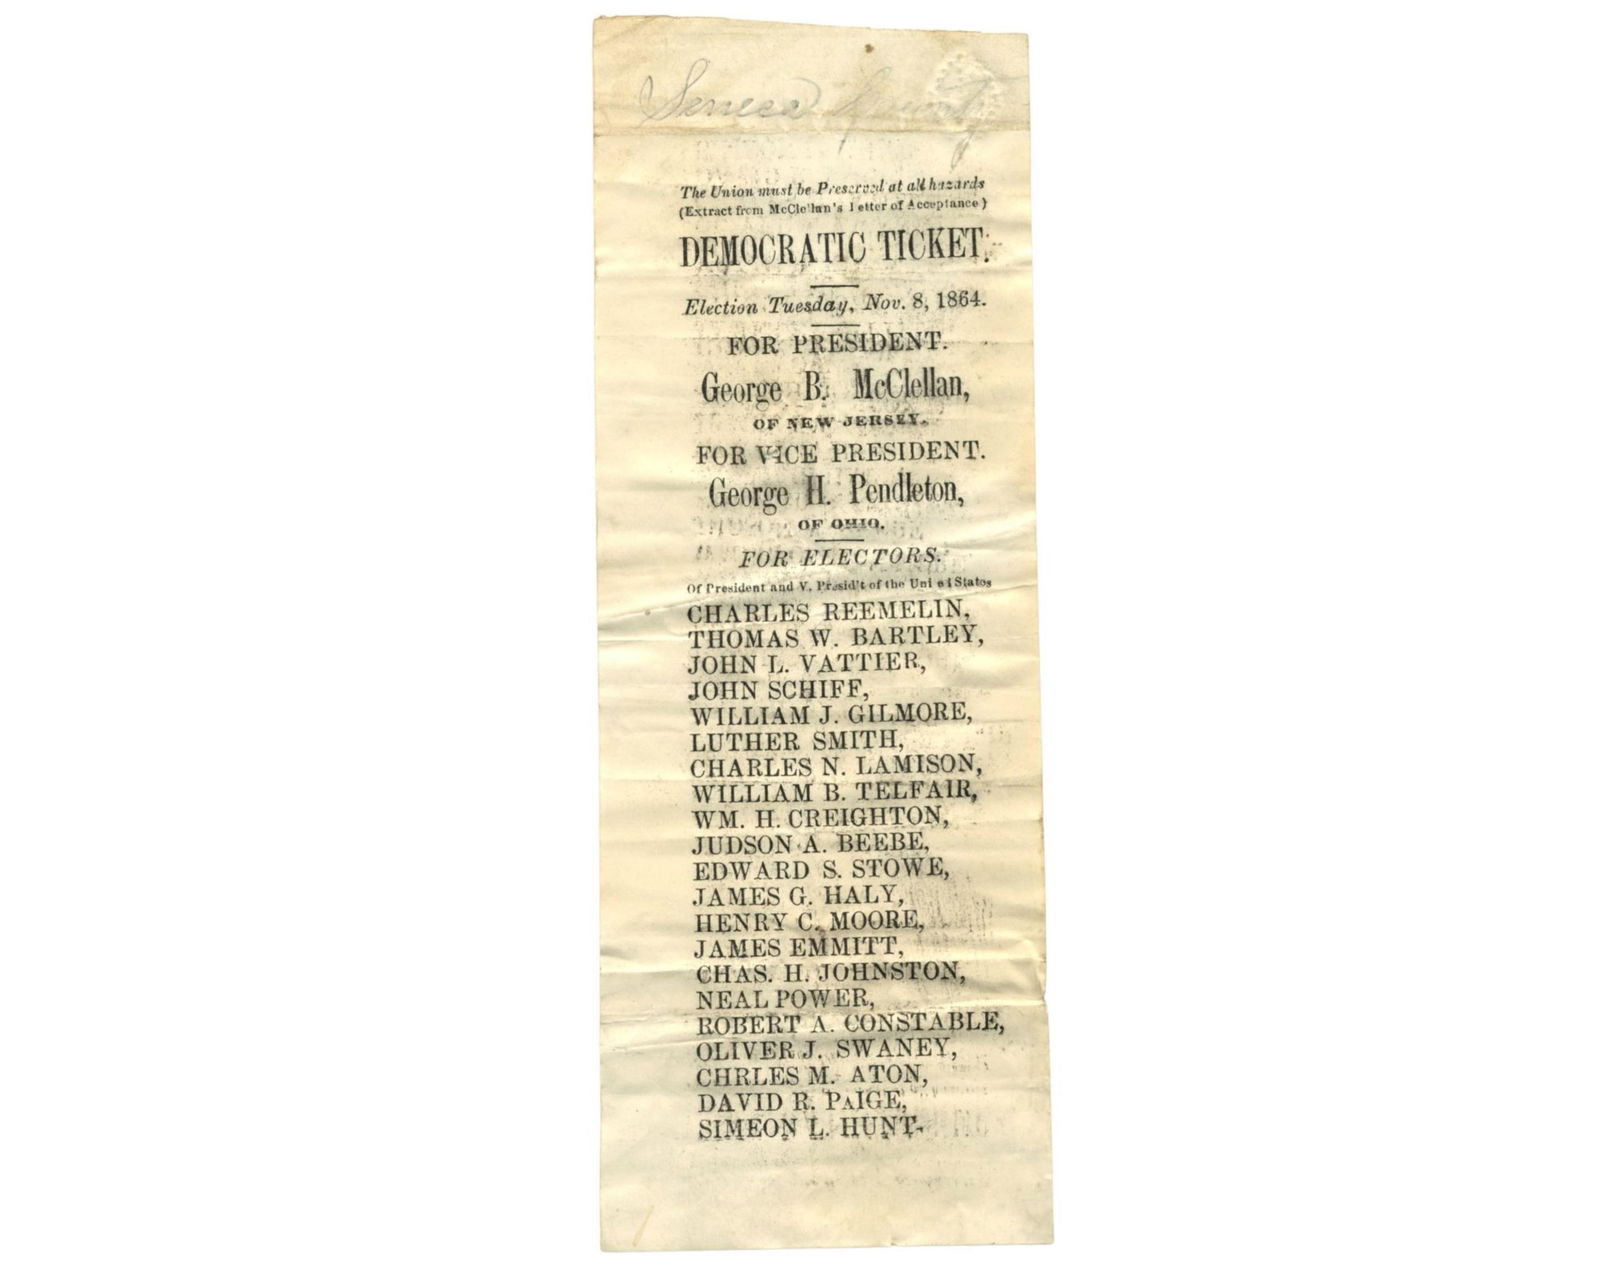 Seneca County
The Union must be Preserved at all hazards
(Extract from McClellan's Letter of Acceptance)
DEMOCRATIC TICKET.
Election Tuesday, Nov. 8, 1864.
FOR PRESIDENT.
George B. McClellan,
OF NEW JERSEY.
FOR VICE PRESIDENT.
George H. Pendleton,
OF OHIO.
FOR ELECTORS.
Of President and V. Presid't of the United States
CHARLES REEMELIN,
THOMAS W. BARTLEY,
JOHN L. VATTIER,
JOHN SCHIFF,
WILLIAM J. GILMORE,
LUTHER SMITH,
CHARLES N. LAMISON,
WILLIAM B. TELFAIR,
WM. H. CREIGHTON,
JUDSON A. BEEBE,
EDWARD S. STOWE,
JAMES G. HALY,
HENRY C. MOORE,
JAMES EMMITT,
CHAS. H. JOHNSTON,
NEAL POWER,
ROBERT A. CONSTABLE,
OLIVER J. SWANEY,
CHRLES M. ATON,
DAVID R. PAIGE,
SIMEON L. HUNT.